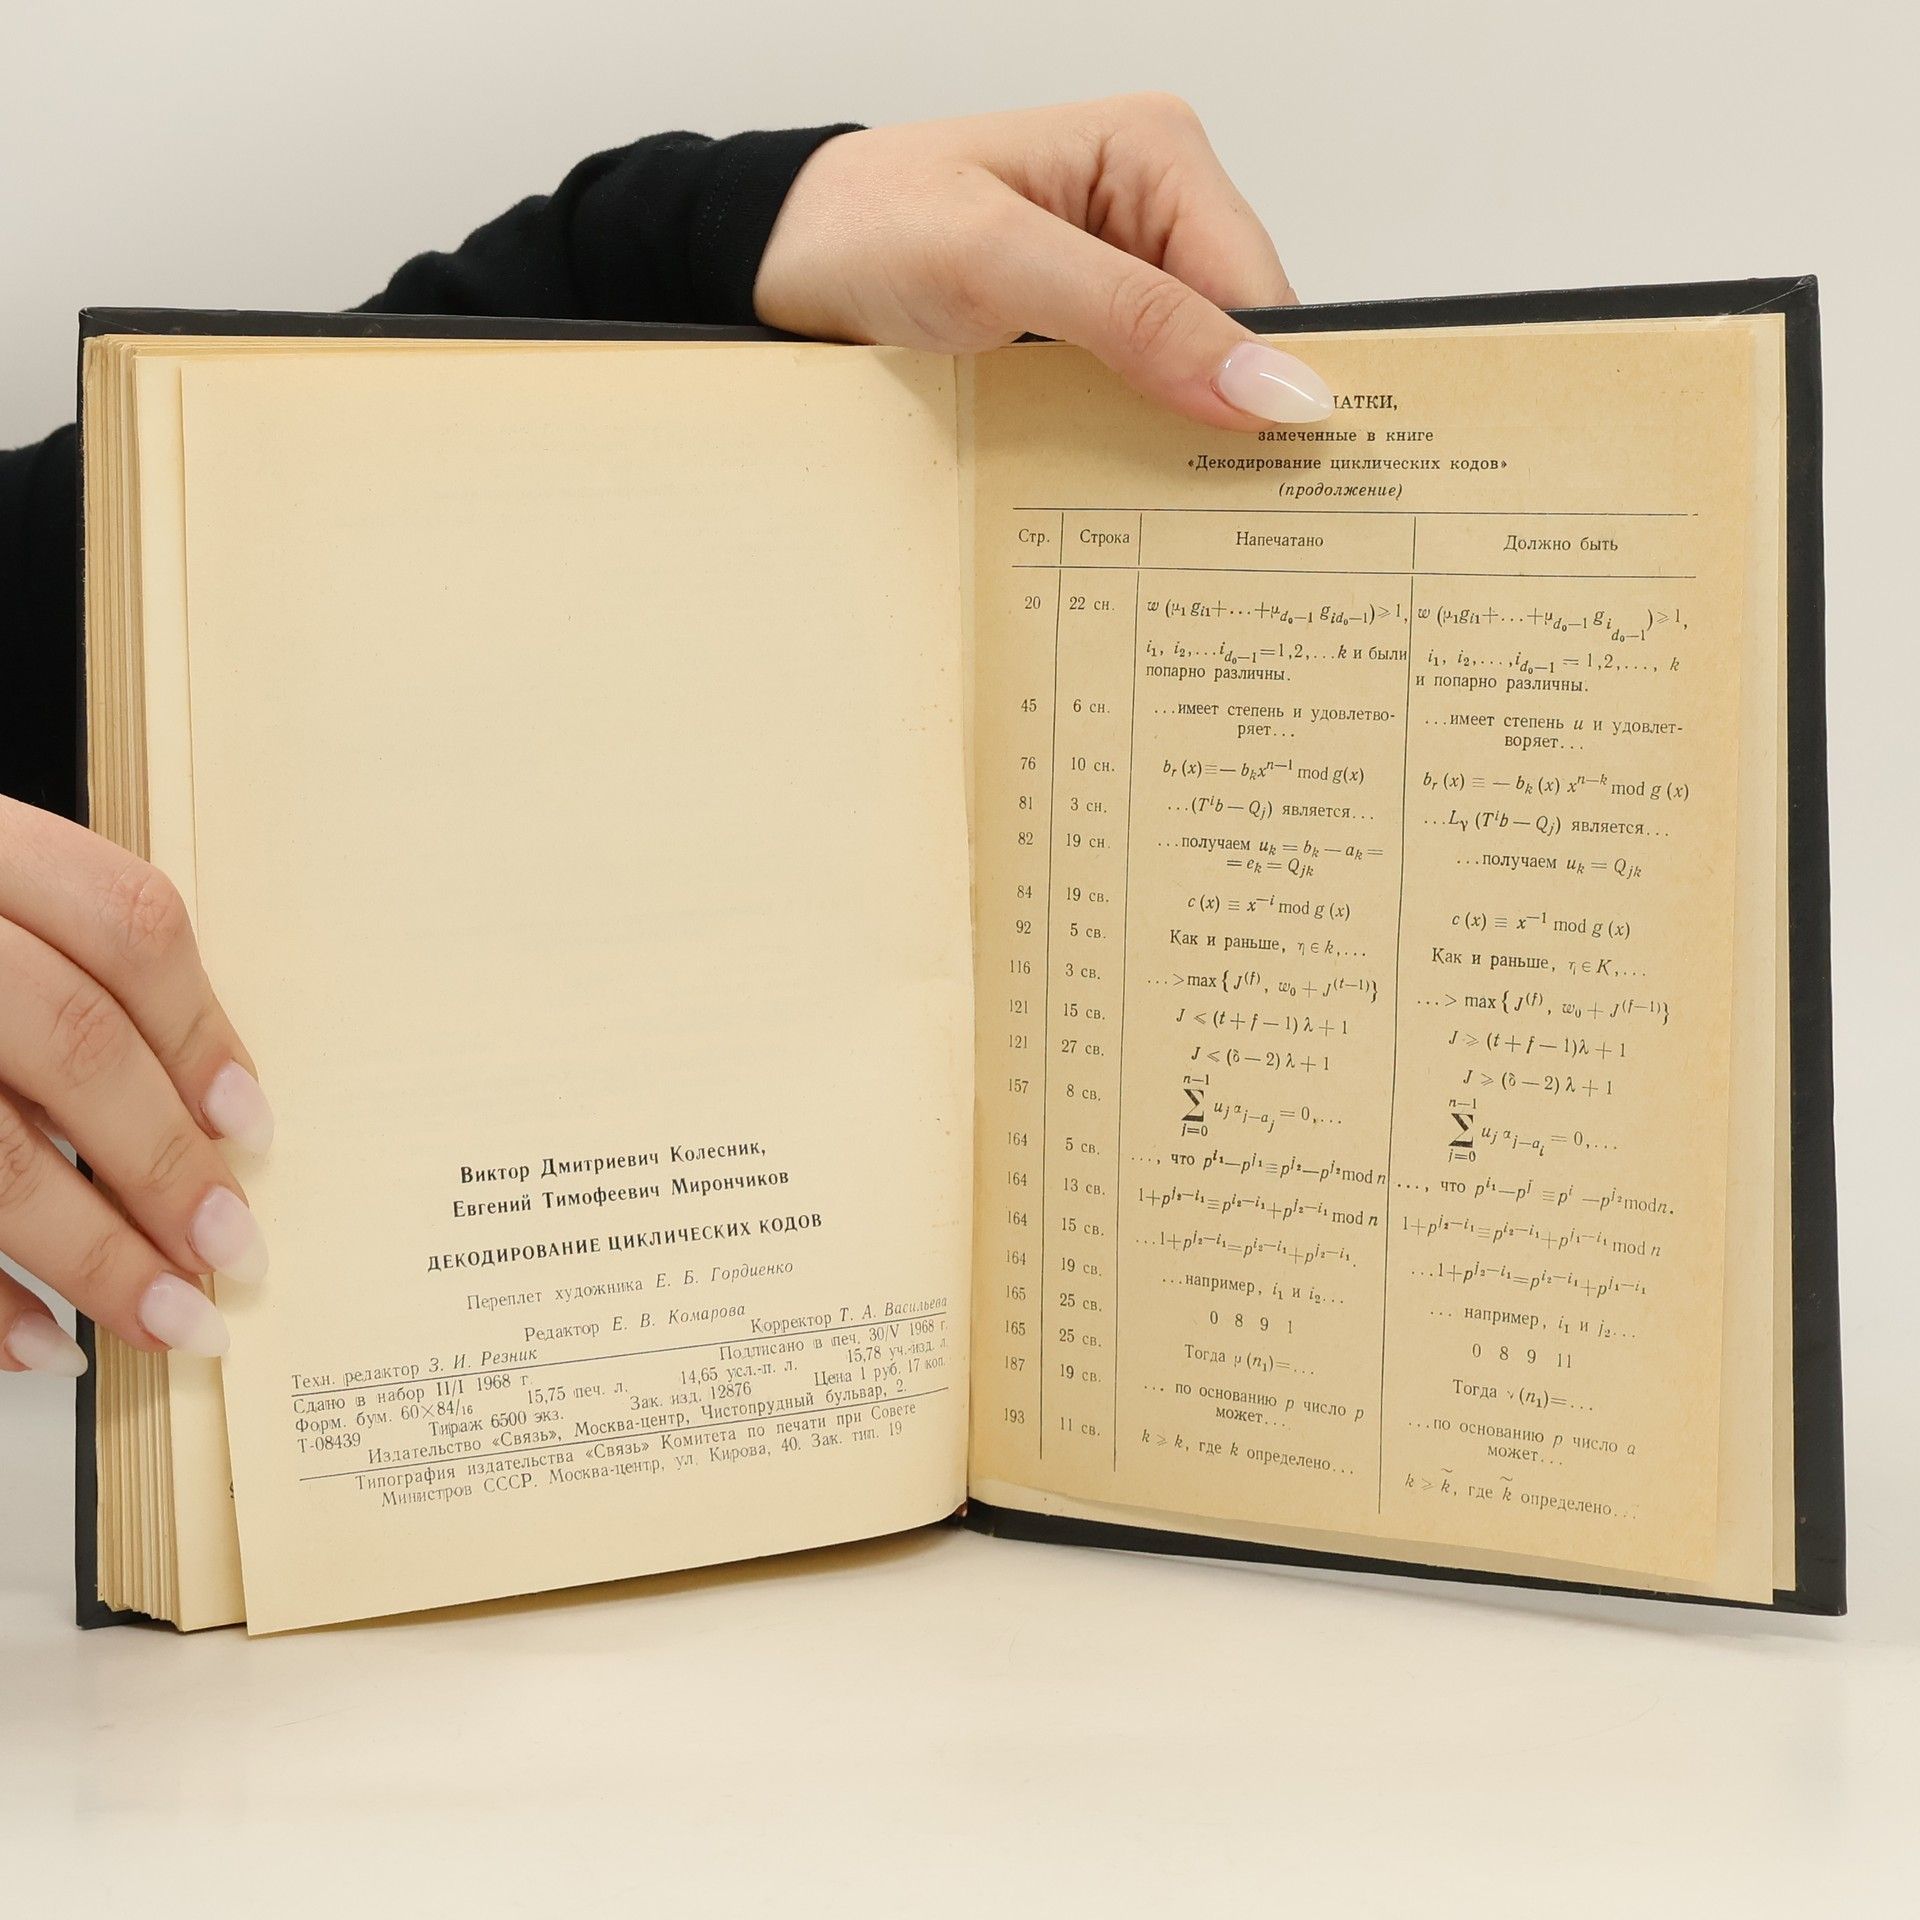 Виктор Дмитриевич Колесник,
Евгений Тимофеевич Мирончиков
ДЕКОДИРОВАНИЕ ЦИКЛИЧЕСКИХ КОДОВ
Переплет художника Е. Б. Гордиенко
Редактор Е. В. Комарова
Техн. редактор З. И. Резник Корректор Т. А. Васильева
Сдано в набор II/I 1968 г. Подписано в печ. 30/V 1968 г.
Форм. бум. 60×84/16 15,75 печ. л. 14,65 усл.-п. л. 15,78 уч.-изд. л.
Т-08439 Тираж 6500 экз. Зак. изд. 12876 Цена 1 руб. 17 коп.
Издательство «Связь», Москва-центр, Чистопрудный бульвар, 2.
Типография издательства «Связь» Комитета по печати при Совете
Министров СССР. Москва-центр, ул. Кирова, 40. Зак. тип. 19
замеченные в книге
«Декодирование циклических кодов»
(продолжение)
Стр. Строка Напечатано Должно быть
20 22 сн. w (μ₁ g_{i1}+...+μ_{d₀—1} g_{id₀—1})⩾1, w (μ₁g_{i1}+...+μ_{d₀—1} g_{i_{d₀—1}})⩾1,
i₁, i₂,...i_{d₀—1}=1,2,...k и были i₁, i₂,...,i_{d₀—1} = 1,2,..., k
попарно различны. и попарно различны.
45 6 сн. ...имеет степень и удовлетво- ...имеет степень u и удовлет-
ряет... воряет...
76 10 сн. b_r (x)≡— b_k x^{n—1} mod g(x) b_r (x) ≡ — b_k (x) x^{n—k} mod g (x)
81 3 сн. ...(T^i b — Q_j) является... ...L_γ (T^i b — Q_j) является...
82 19 сн. ...получаем u_k = b_k — a_k = ...получаем u_k = Q_{jk}
= e_k = Q_{jk}
84 19 св. c (x) ≡ x^{—i} mod g (x) c (x) ≡ x^{—1} mod g (x)
92 5 св. Как и раньше, η ∈ k,... Как и раньше, η ∈ K,...
116 3 св. ...>max { J^{(f)}, w₀ + J^{(t—1)}} ...> max { J^{(f)}, w₀ + J^{(f—1)}}
121 15 св. J ⩽ (t + f — 1) λ + 1 J ⩾ (t + f — 1)λ + 1
121 27 св. J ⩽ (δ — 2) λ + 1 J ⩾ (δ — 2) λ + 1
157 8 св. ∑_{j=0}^{n—1} u_j α_{j—a_j} = 0,... ∑_{j=0}^{n—1} u_j α_{j—a_i} = 0,...
164 5 св. ..., что p^{i₁}—p^{j₁}≡p^{i₂}—p^{j₂} mod n ..., что p^{i₁}—p^{j} ≡p^{i} —p^{j₂} mod n.
164 13 св. 1+p^{j₂—i₁}≡p^{i₂—i₁}+p^{j₂—i₁} mod n 1+p^{j₂—i₁}≡p^{i₂—i₁}+p^{j₁—i₁} mod n
164 15 св. ...1+p^{j₂—i₁}=p^{i₂—i₁}+p^{j₂—i₁}. ...1+p^{j₂—i₁}=p^{i₂—i₁}+p^{j₁—i₁}
164 19 св. ...например, i₁ и i₂... ... например, i₁ и j₂...
165 25 св. 0 8 9 1 0 8 9 11
165 25 св. Тогда μ (n₁)=... Тогда ν (n₁)=...
187 19 св. ... по основанию p число p ...по основанию p число a
может... может...
193 11 св. k ⩾ k, где k определено... k ⩾ k̃, где k̃ определено...